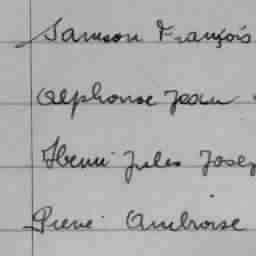 Samson François
Alphonse Jean
Henri Jules Josep
Pierre Ambroise